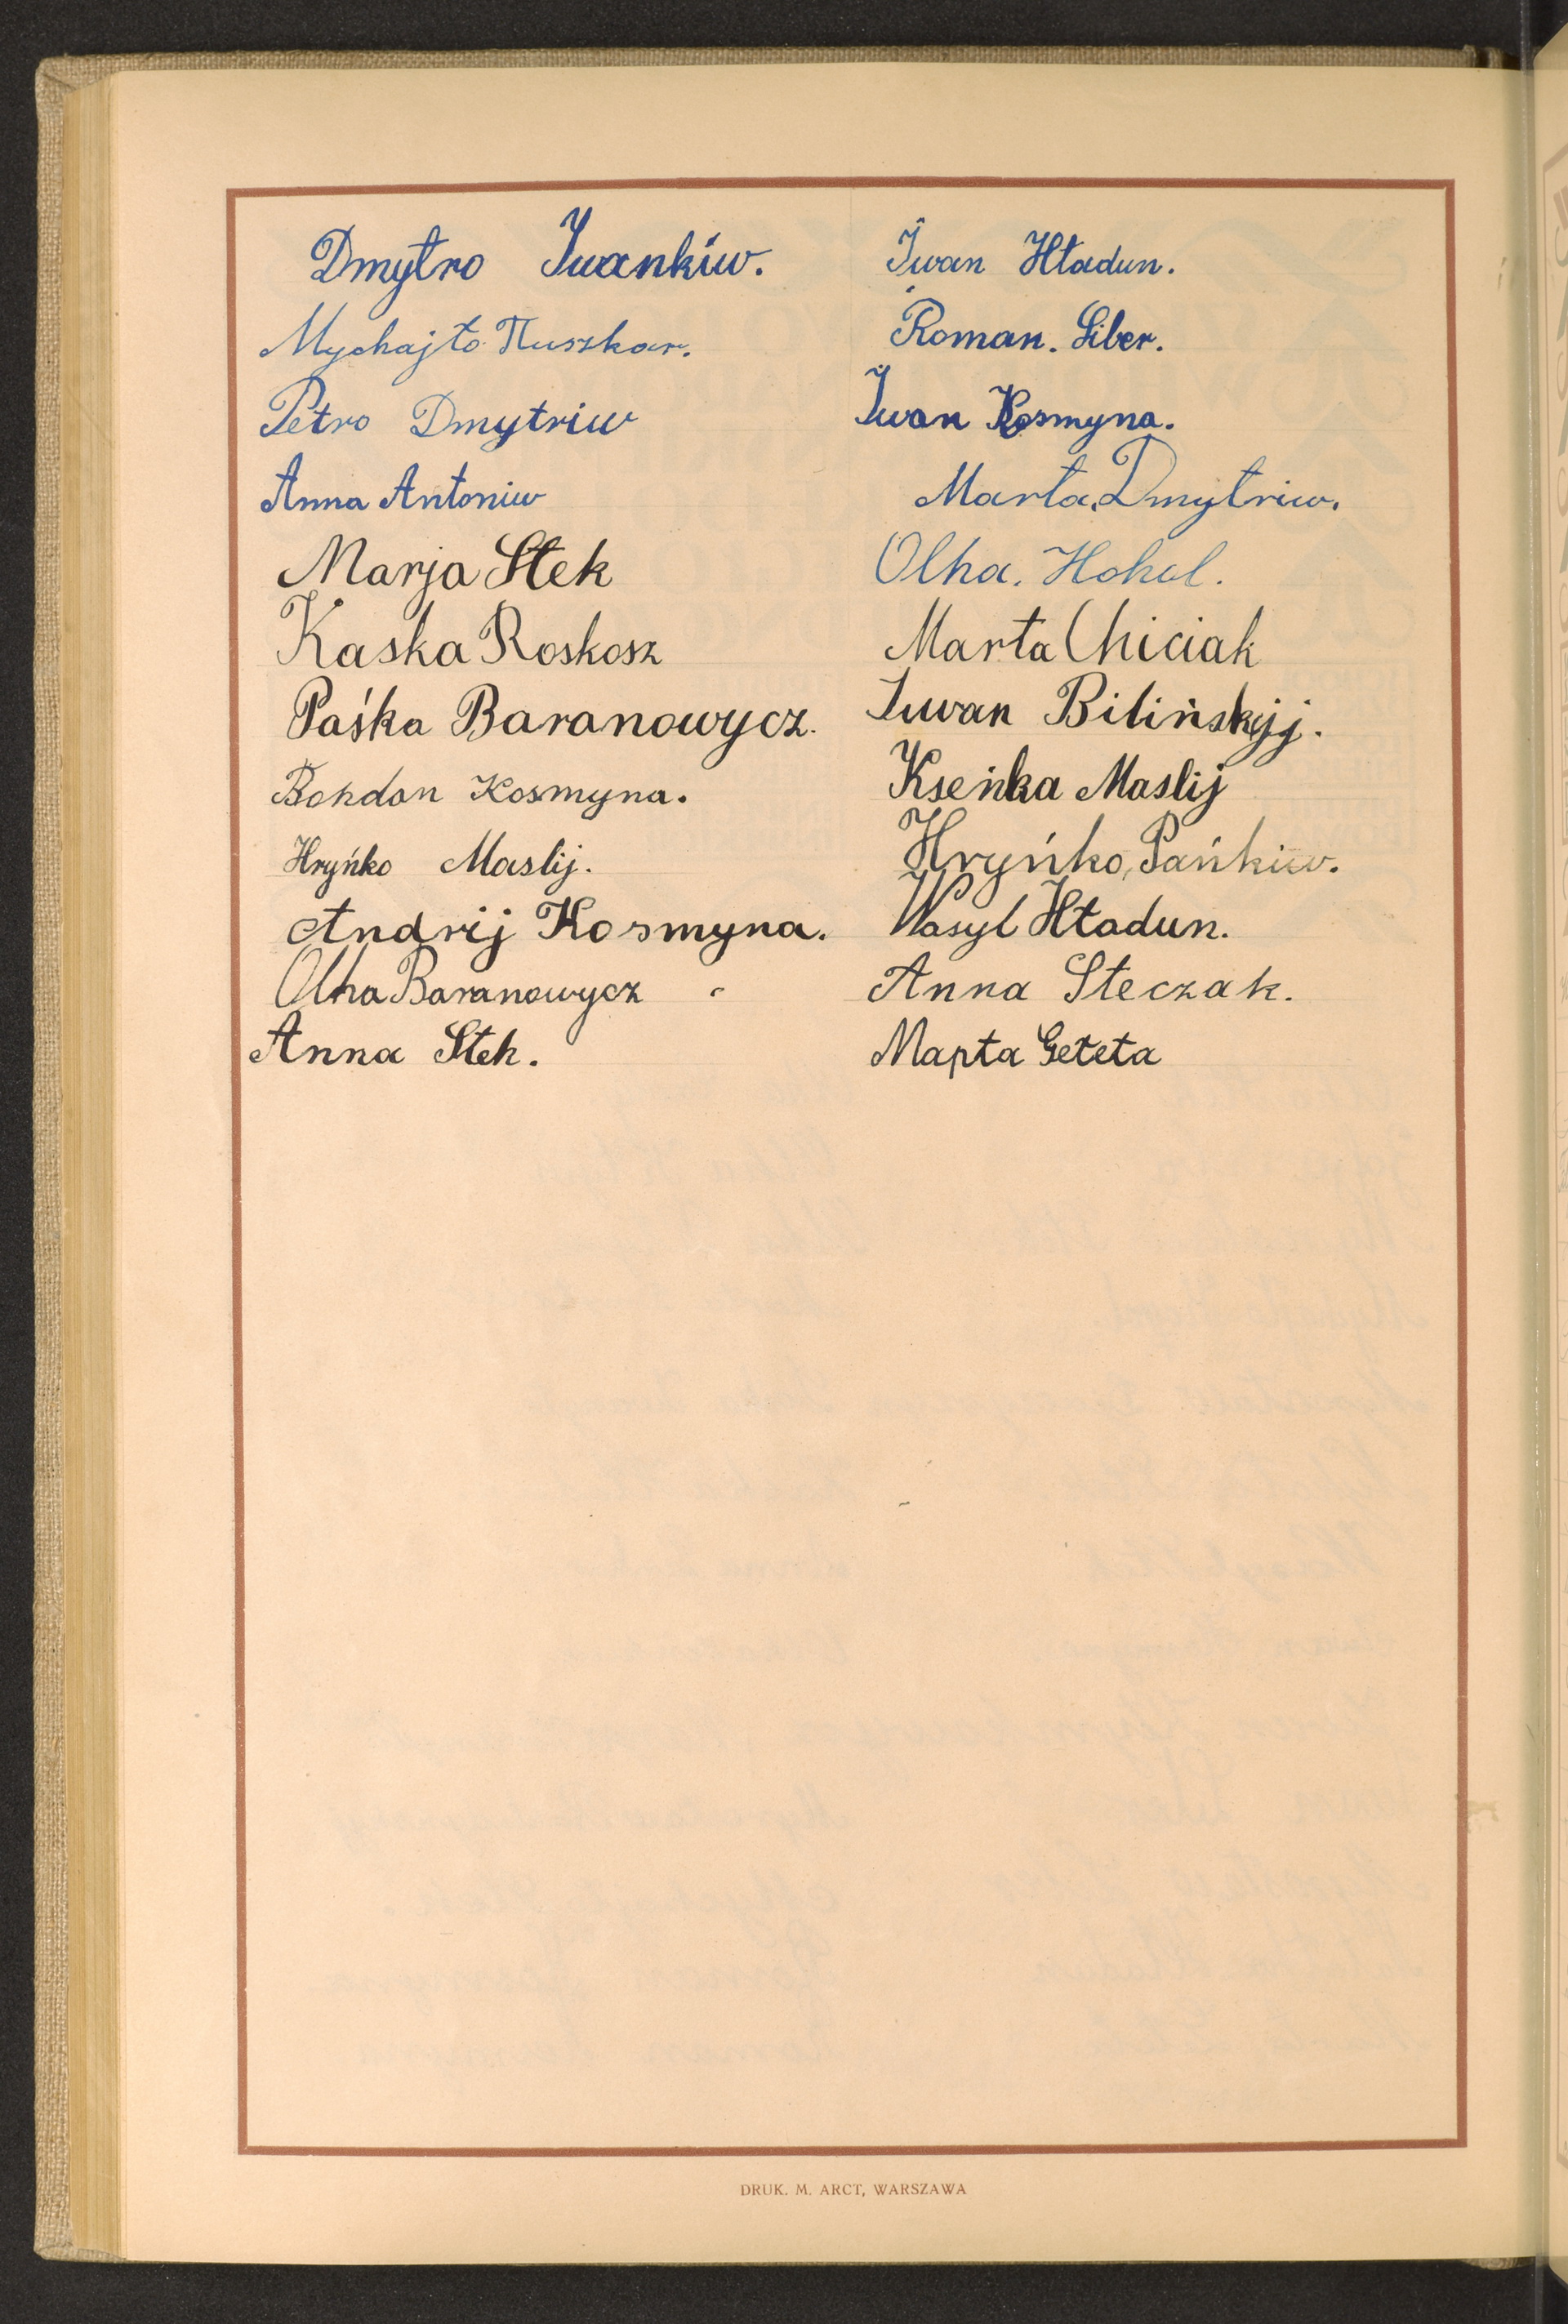 Dmytro Iwankiw.
Mychajło Tłuszkar.
Petro Dmytriw
Anna Antoniw
Marja Stek
Kaska Roskosz
Paśka Baranowycz.
Bohdan Kosmyna.
Hryńko Maslij.
Andrij Kosmyna.
Olha Baranowycz
Anna Stek.
Iwan Hładun.
Roman. Liber.
Iwan Kosmyna.
Marta. Dmytriw.
Olha. Hokal.
Marta Chiciak
Iwan Bilińskyj.
Kseńka Maslij
Hryńko, Pańkiw.
Wasyl Hładun.
Anna Steczak.
Mapta Geteta
DRUK. M. ARCT, WARSZAWA